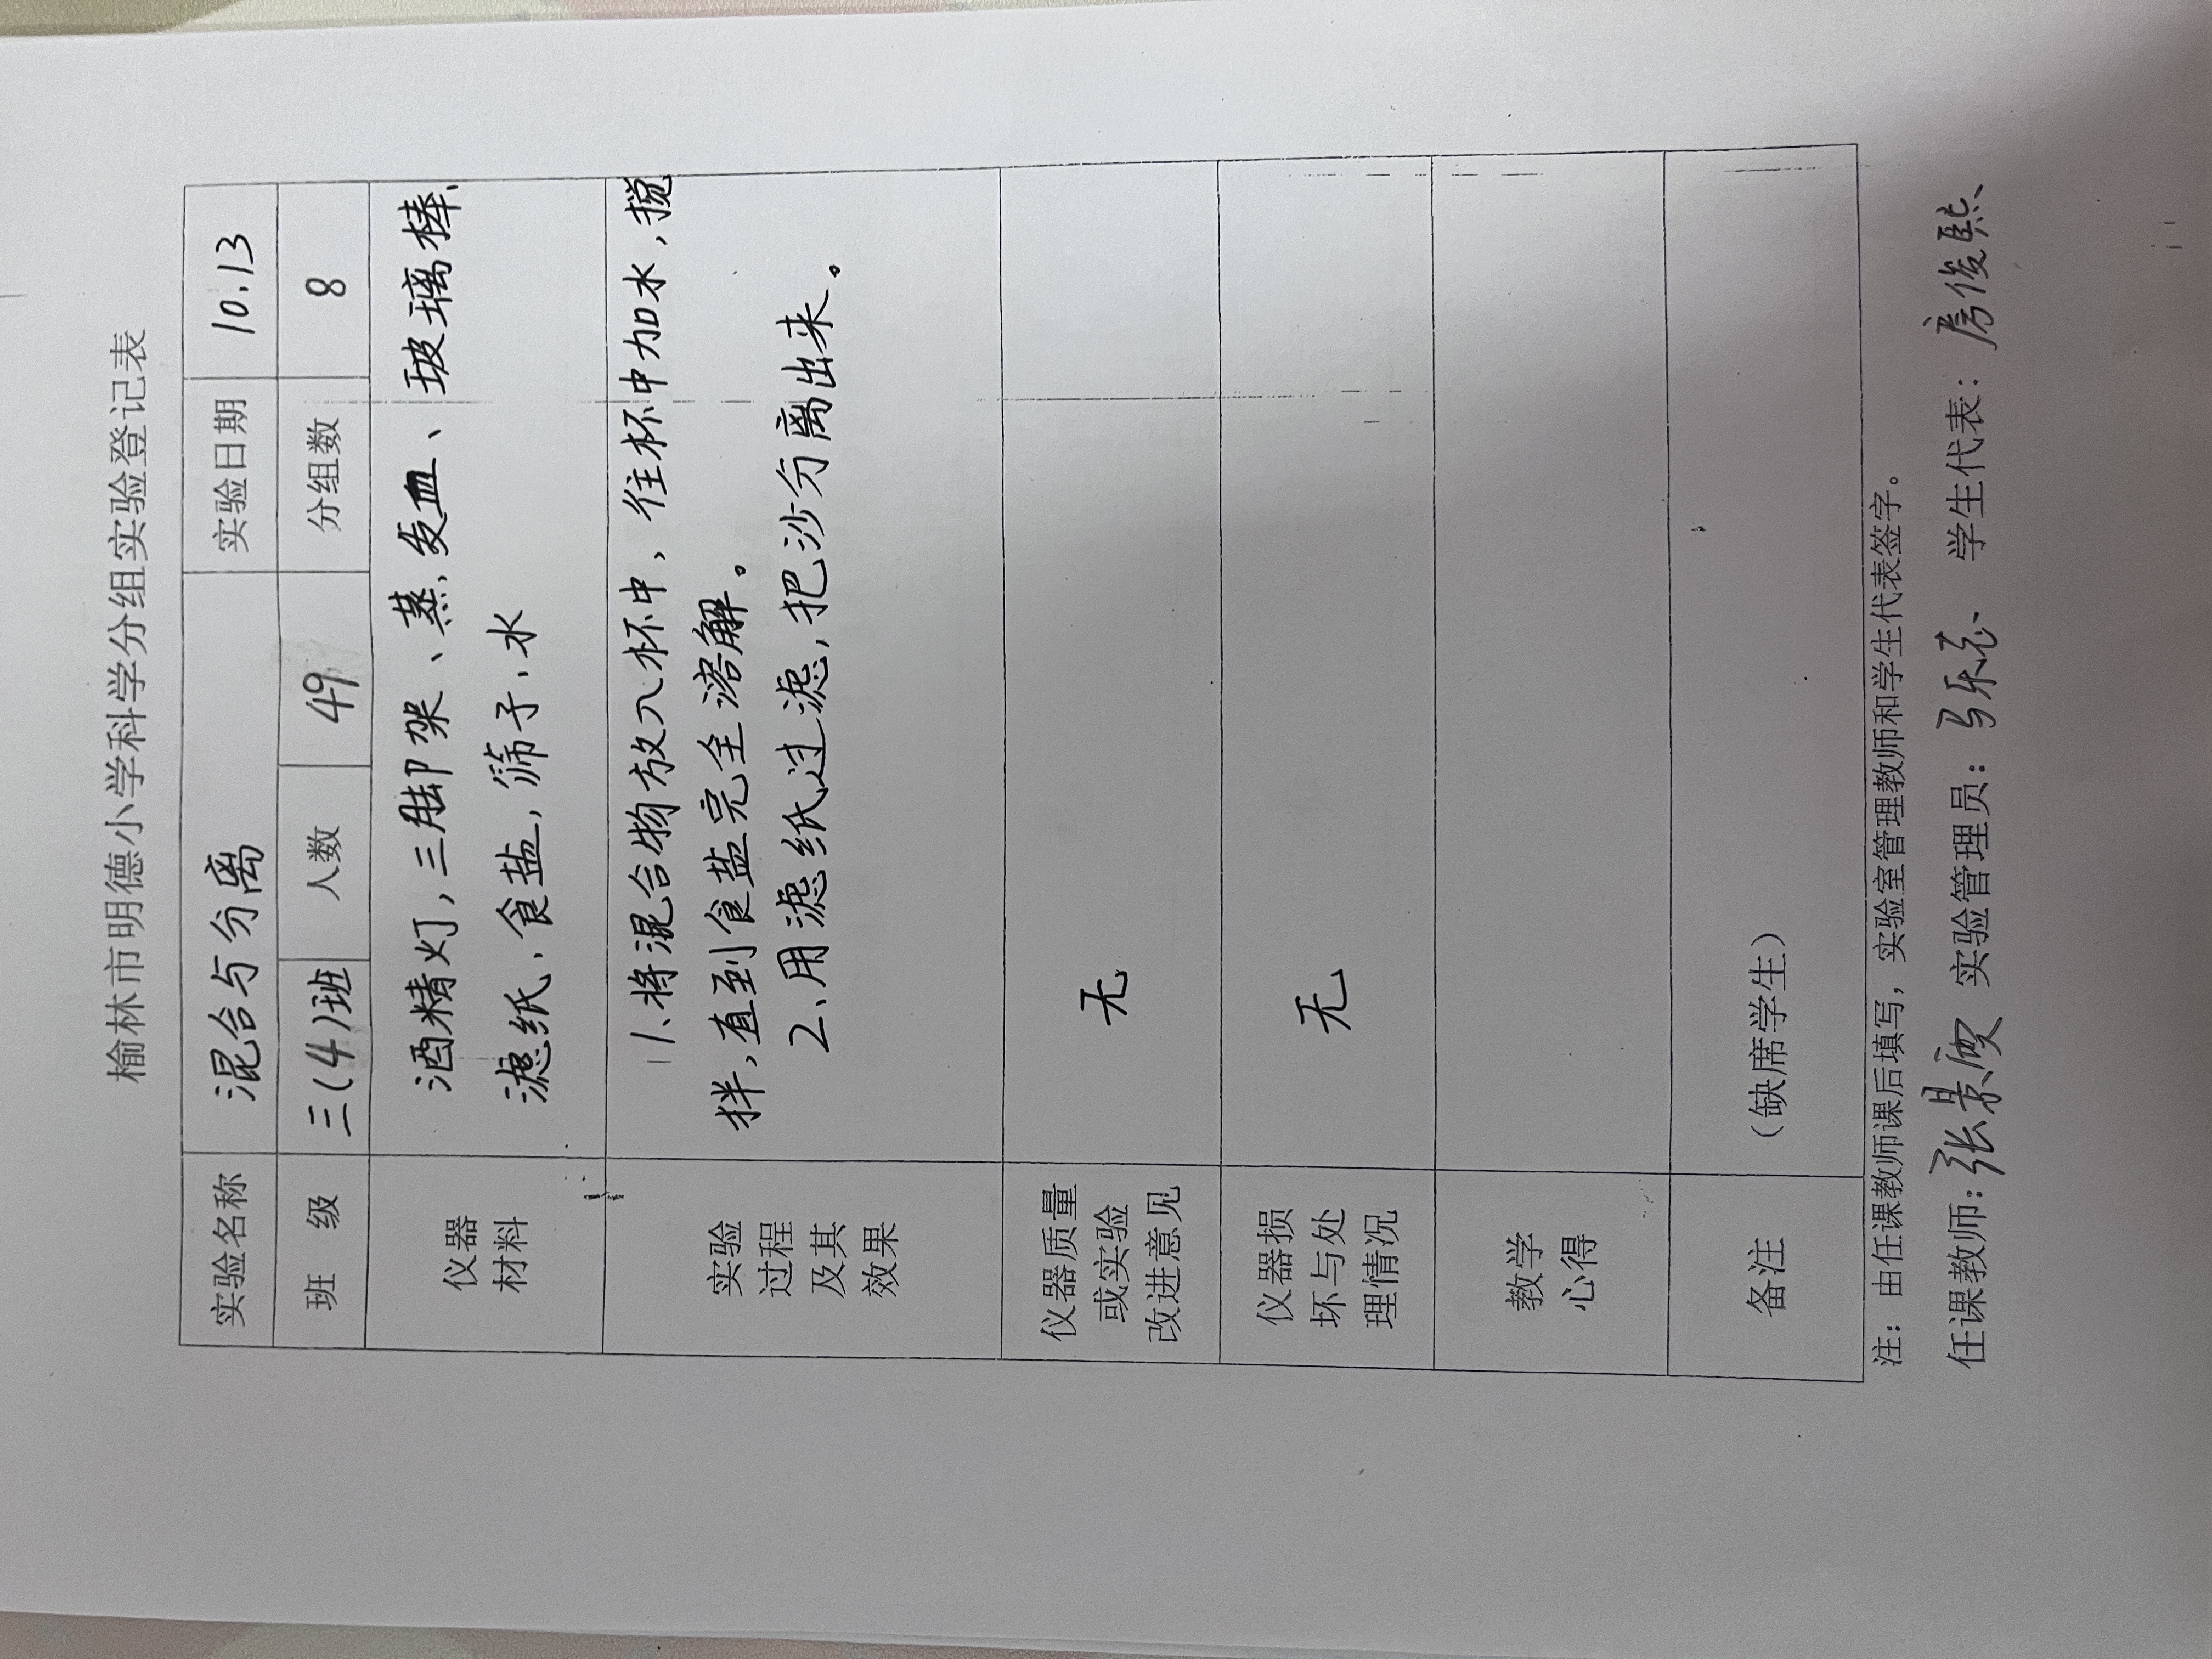 榆林市明德小学科学分组实验登记表
实验名称 混合与分离 实验日期 10.13
班 级 三(4)班 人数 49 分组数 8
仪器
材料
酒精灯,三脚架、蒸发皿、玻璃棒、
滤纸、食盐,筛子、水
实验
过程
及其
效果
1、将混合物放入杯中,往杯中加水,搅
拌,直到食盐完全溶解。
2、用滤纸过滤,把沙分离出来。
仪器质量
或实验
改进意见
无
仪器损
坏与处
理情况
无
教学
心得
备注
(缺席学生)
注:由任课教师课后填写,实验室管理教师和学生代表签字。
任课教师:张 实验管理员:马乐 学生代表:房俊熙